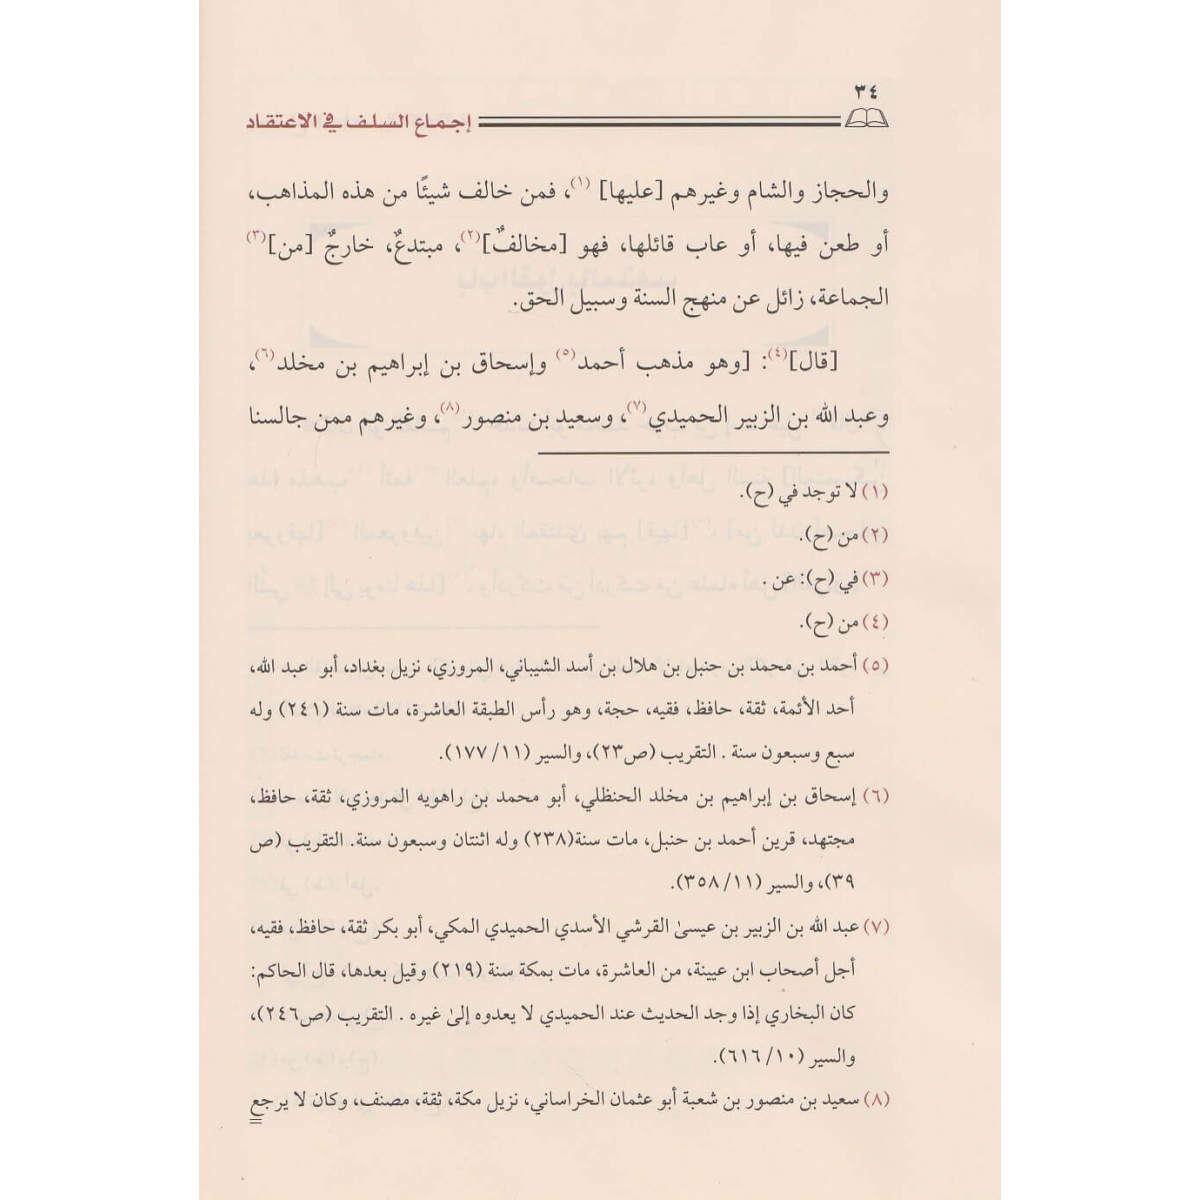 ٣٤
إجماع السلف في الاعتقاد
والحجاز والشام وغيرهم [عليها] (١)، فمن خالف شيئًا من هذه المذاهب،
أو طعن فيها، أو عاب قائلها، فهو [مخالفٌ](٢)، مبتدعٌ، خارجٌ [من](٣)
الجماعة، زائل عن منهج السنة وسبيل الحق.
[قال](٤): [وهو مذهب أحمد(٥) وإسحاق بن إبراهيم بن مخلد(٦)،
وعبد الله بن الزبير الحميدي(٧)، وسعيد بن منصور(٨)، وغيرهم ممن جالسنا
(١) لا توجد في (ح).
(٢) من (ح).
(٣) في (ح): عن .
(٤) من (ح).
(٥) أحمد بن محمد بن حنبل بن هلال بن أسد الشيباني، المروزي، نزيل بغداد، أبو عبد الله،
أحد الأئمة، ثقة، حافظ، فقيه، حجة، وهو رأس الطبقة العاشرة، مات سنة (٢٤١) وله
سبع وسبعون سنة . التقريب (ص٢٣)، والسير (١١/ ١٧٧).
(٦) إسحاق بن إبراهيم بن مخلد الحنظلي، أبو محمد بن راهويه المروزي، ثقة، حافظ،
مجتهد، قرين أحمد بن حنبل، مات سنة(٢٣٨) وله اثنتان وسبعون سنة. التقريب (ص
٣٩)، والسير (١١/ ٣٥٨).
(٧) عبد الله بن الزبير بن عيسىٰ القرشي الأسدي الحميدي المكي، أبو بكر ثقة، حافظ، فقيه،
أجل أصحاب ابن عيينة، من العاشرة، مات بمكة سنة (٢١٩) وقيل بعدها، قال الحاكم:
كان البخاري إذا وجد الحديث عند الحميدي لا يعدوه إلىٰ غيره . التقريب (ص٢٤٦)،
والسير (١٠/ ٦١٦).
(٨) سعيد بن منصور بن شعبة أبو عثمان الخراساني، نزيل مكة، ثقة، مصنف، وكان لا يرجع